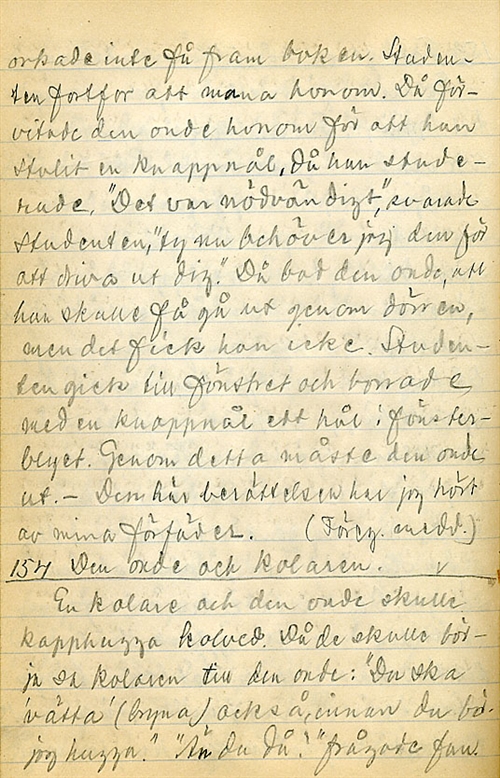 orkade inte få fram boken. Studen-
ten fortfor att mana honom. Då för-
vitade den onde honom för att han
stulit en knappnål, då han stude-
rade. "Det var nödvändigt", svarade
studenten, "ty nu behöver jag den för
att driva ut dig." Då bad den onde, att
han skulle få gå ut genom dörren,
men det fick han icke. Studen-
ten gick till fönstret och borrade
med en knappnål ett hål i fönster-
blyet. Genom detta måste den onde
ut. – Den här berättelsen har jag hört
av mina förfäder. (Föreg. medd.)
154 Den onde och kolaren. v
En kolare och den onde skulle
kapphugga kolved. Då de skulle bör-
ja sa kolaren till den onde: "Du ska
'vätta' (bryna) också, innan du bör-
jar hugga." "Än du då!" frågade fan.